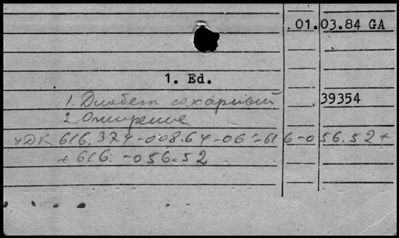 01.03.84 GA
1. Ed.
1. Диабет сахарный 39354
2. Ожирение
УДК 616.374-008.64-06:616-056.52+
+616.-056.52